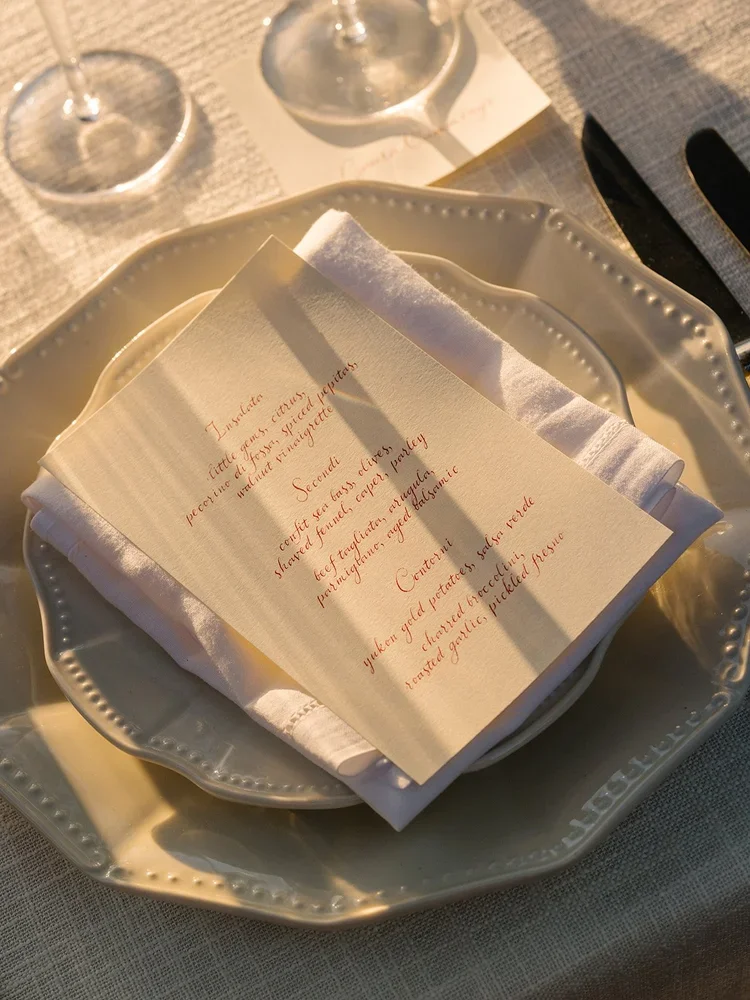 Insalata
little gems, citrus,
pecorino di fossa, spiced pepitas,
walnut vinaigrette
Secondi
confit sea bass, olives,
shaved fennel, caper, parsley
beef tagliata, arugula,
parmigiano, aged balsamic
Contorni
yukon gold potatoes, salsa verde
charred broccolini,
roasted garlic, pickled fresno